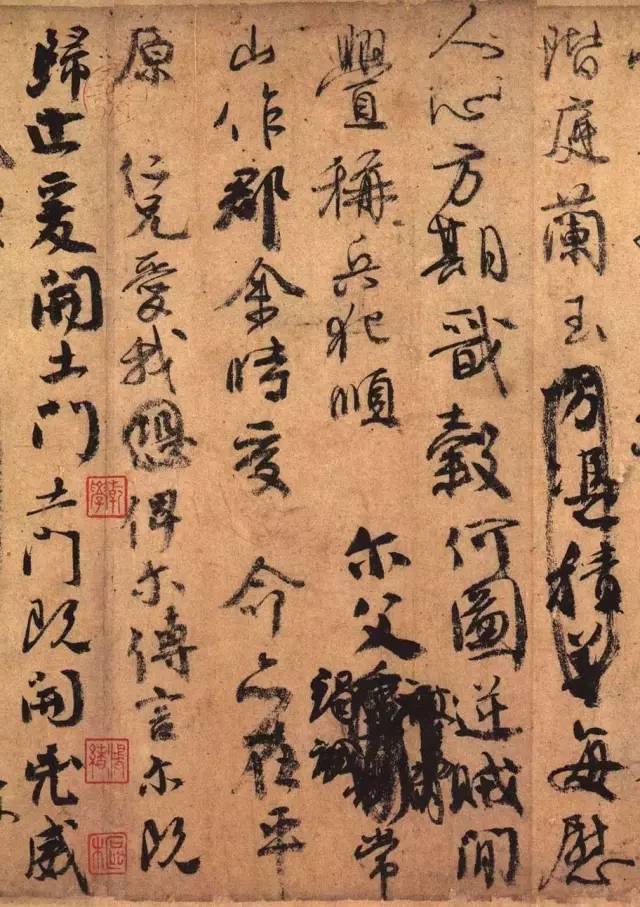 階庭蘭玉方憑積善每慰
人心方期戩穀何圖逆賊閒
釁稱兵犯順 尔父常
山作郡余時受 命亦在平
原 仁兄愛我恐俾尔傳言尔既
歸止爰開土門土門既開兇威
乾學